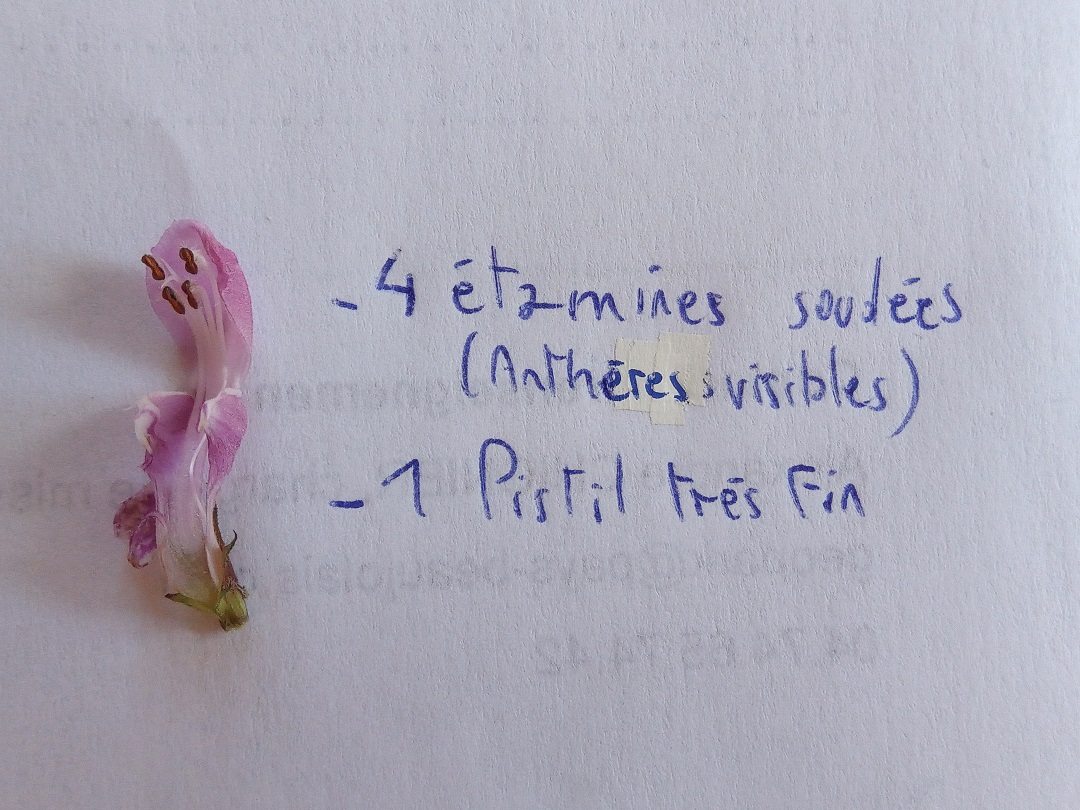 - 4 étamines soudées
(Anthères visibles)
- 1 Pistil très Fin
04 74 65 74 42